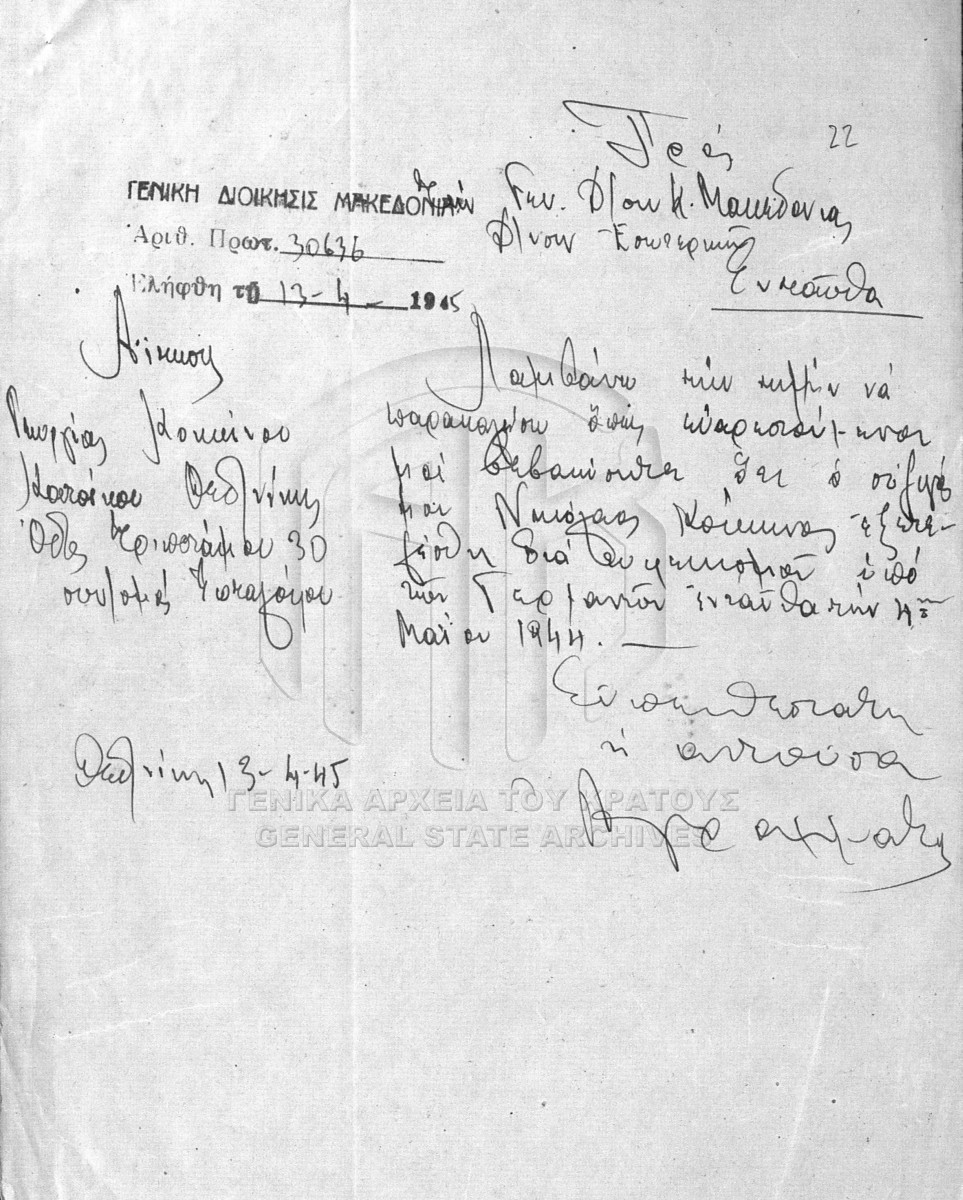 22
Πρός
Γεν. Δ/σιν Κ. Μακεδονίας
Δ/νσιν Εσωτερικών
Ενταύθα
ΓΕΝΙΚΗ ΔΙΟΙΚΗΣΙΣ ΜΑΚΕΔΟΝΙΑΣ
Ἀριθ. Πρωτ. 30636
Ἐλήφθη τῇ 13-4- 1945
Αίτησις
Γεωργίας Κοκκίνου
Κατοίκου Θεσ/νίκης
Οδός 30
Λαμβάνω την τιμήν νά
παρακαλέσω όπως ευαρεστούμενοι
μοί βεβαιώσητε ότι ο σύζυγός
μου Νικόλαος Κόκκινος εξετε-
λέσθη διά τυφεκισμού υπό
των Γερμανών ενταύθα την 4ην
Μαΐου 1944. —
Ευπειθεστάτη
η αιτούσα
Αγράμματη
Θεσ/νίκη 13-4-45
ΓΕΝΙΚΑ ΑΡΧΕΙΑ ΤΟΥ ΚΡΑΤΟΥΣ
GENERAL STATE ARCHIVES